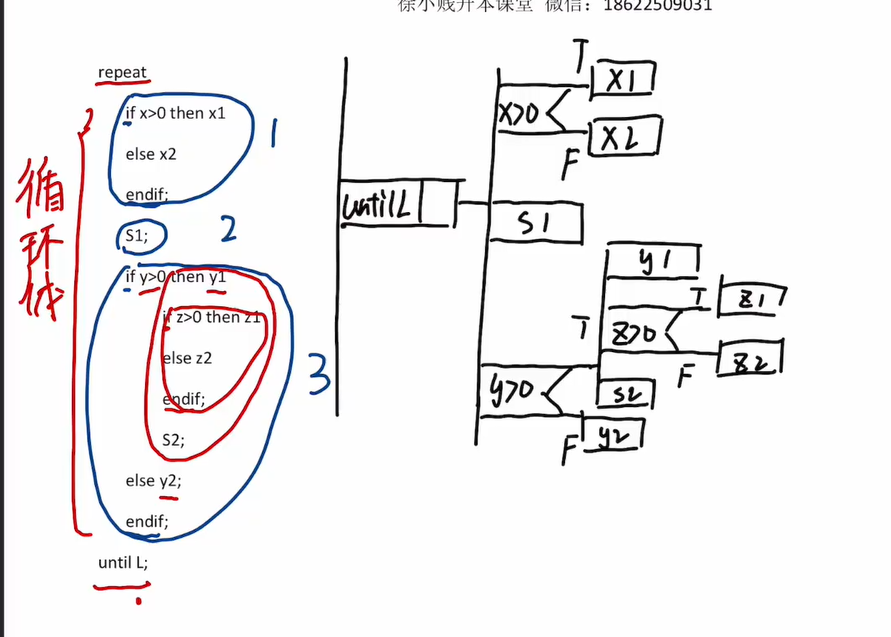 徐小贱升本课堂 微信：18622509031
repeat
if x>0 then x1
else x2
endif;
S1;
if y>0 then y1
if z>0 then z1
else z2
endif;
S2;
else y2;
endif;
until L;
循
环
体
1
2
3
until L
x>0
T
X1
F
X2
S1
y>0
T
y1
z>0
T
z1
F
z2
S2
F
y2